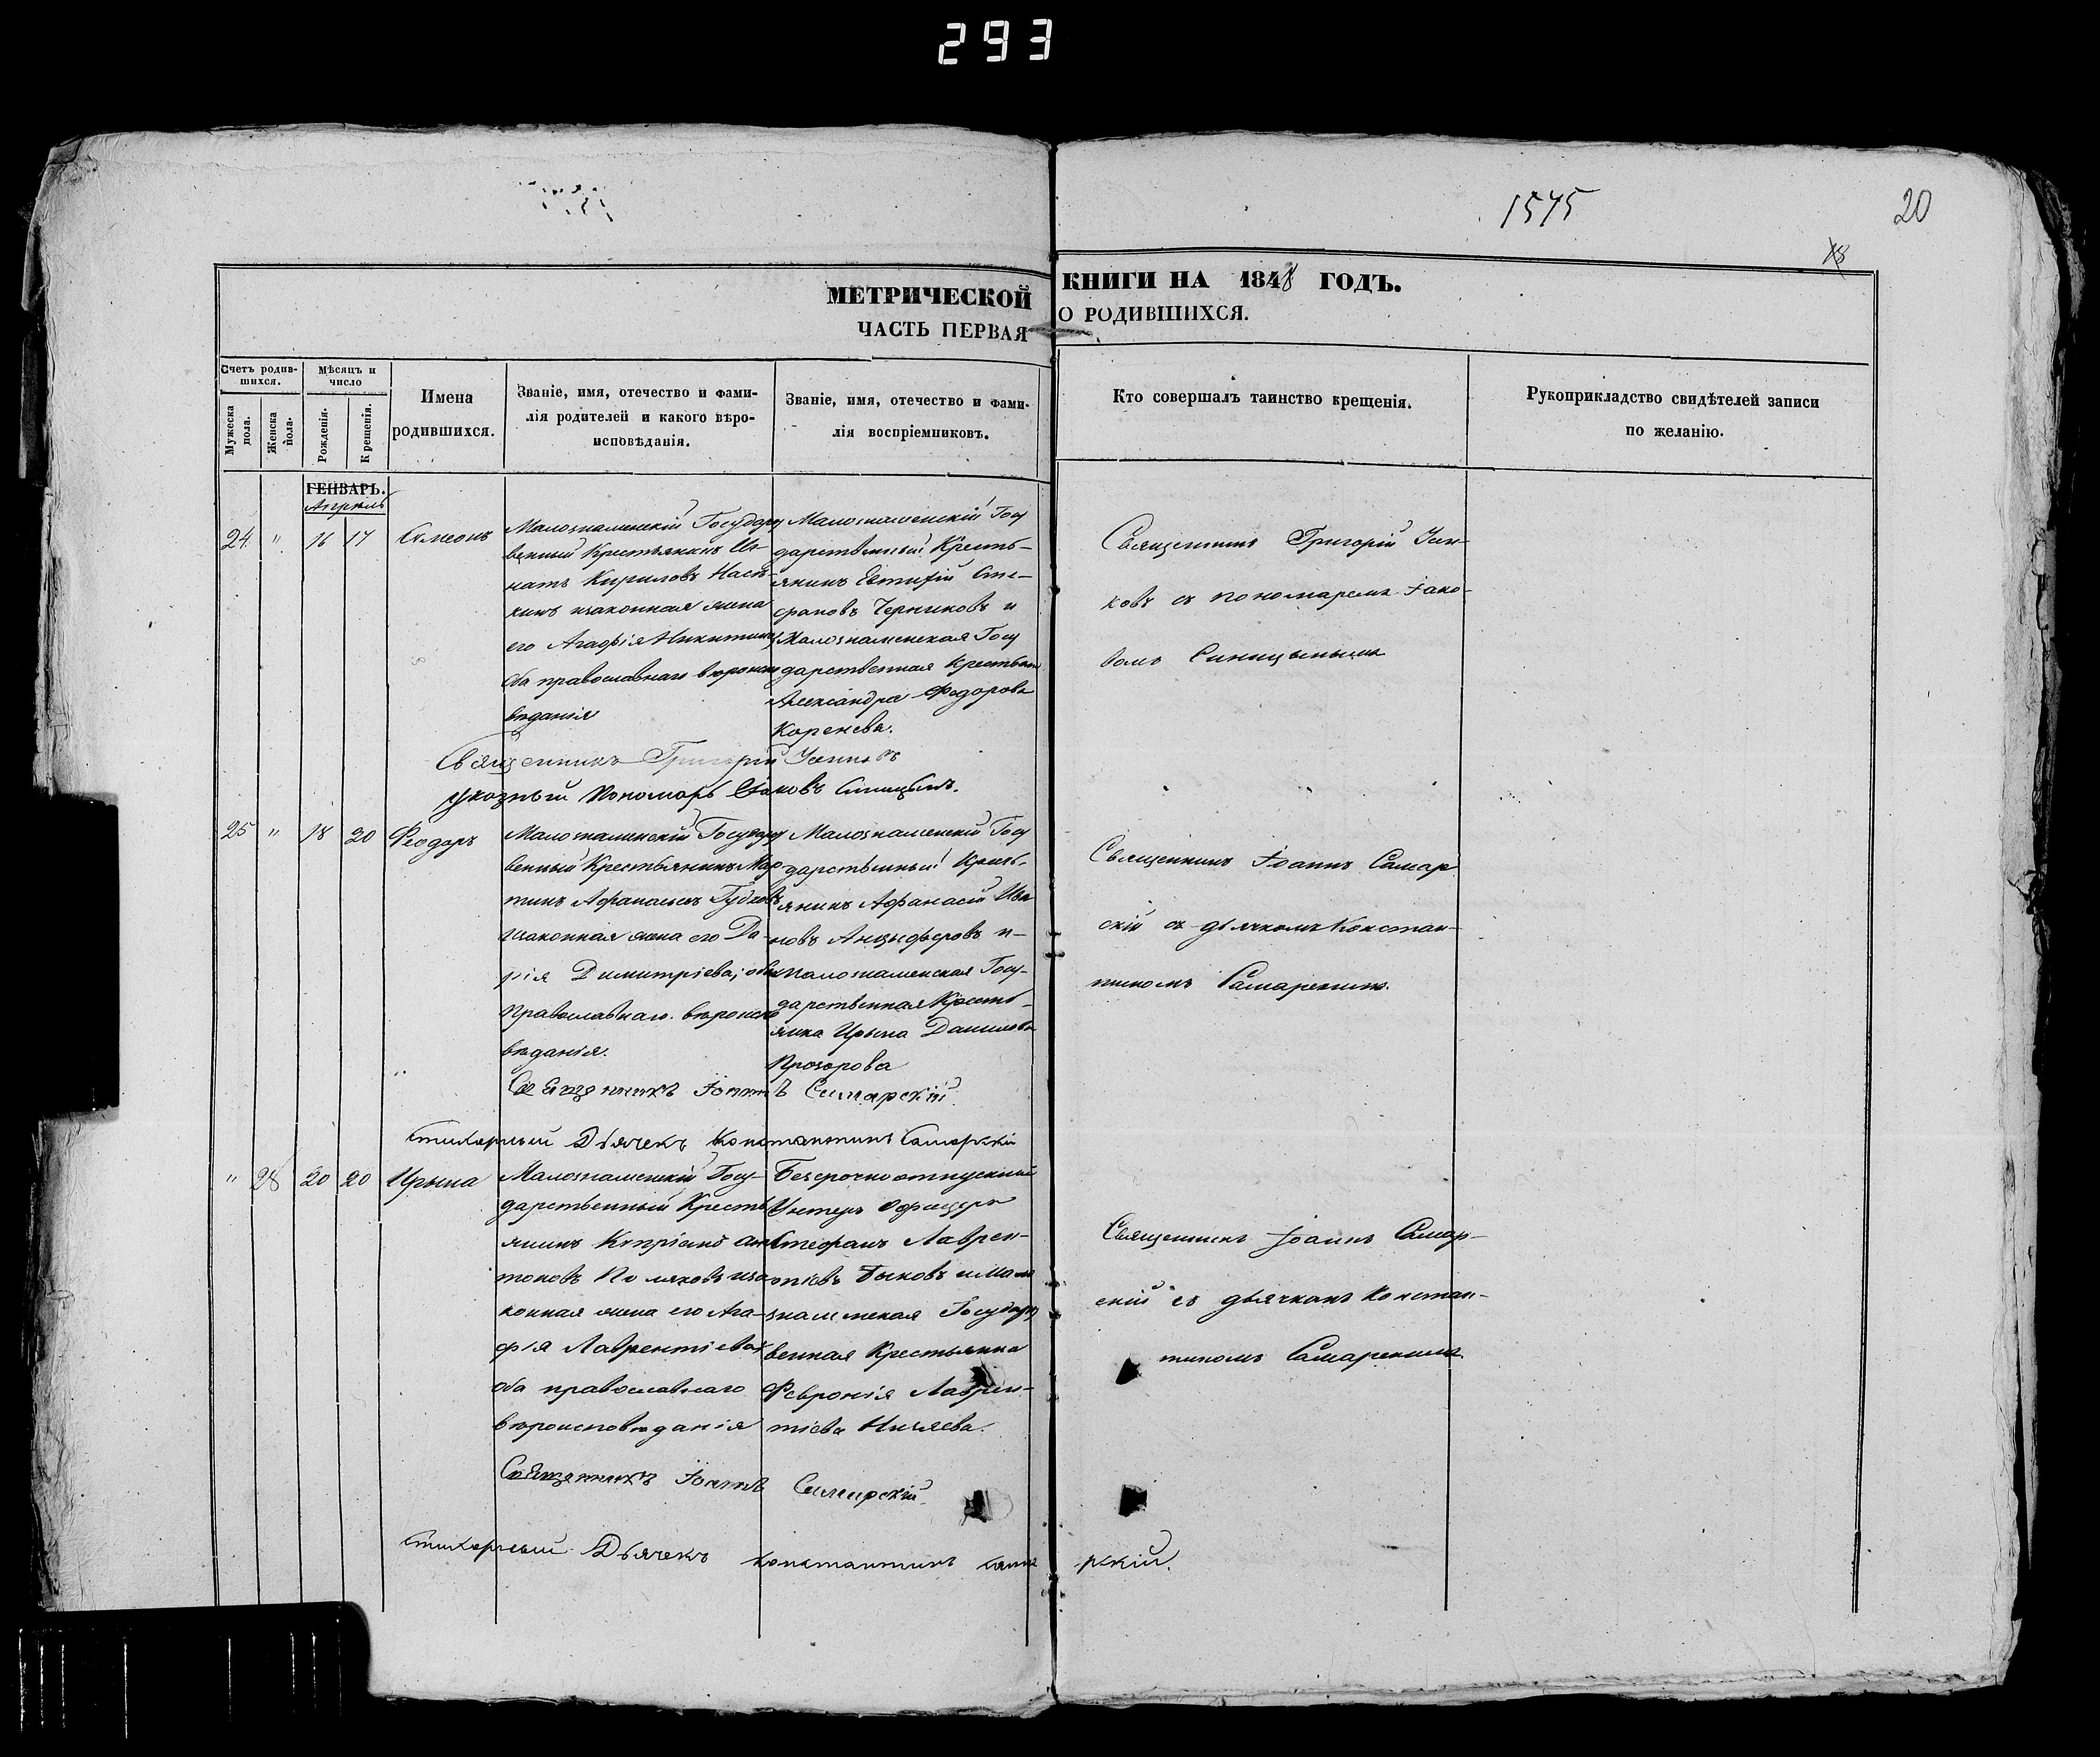 293
1575
20
18
МЕТРИЧЕСКОЙ КНИГИ НА 1848 ГОДЪ.
ЧАСТЬ ПЕРВАЯ О РОДИВШИХСЯ.
Счетъ родив-
шихся.
Мужеска
пола.
Женска
пола.
Мѣсяцъ и
число
Рожденія.
Крещенія.
Имена
родившихся.
Званіе, имя, отечество и фами-
лія родителей и какого вѣро-
исповѣданія.
Званіе, имя, отечество и фами-
лія воспріемниковъ.
Кто совершалъ таинство крещенія.
Рукоприкладство свидѣтелей записи
по желанію.
ГЕНВАРЬ.
Апрель
24 " 16 17
Симеонъ
Малознаменскій Государст
венный Крестьянинъ Иг-
натъ Кириловъ
законная жена
его Агафія Никитина
оба православнаго вероиспо
веданія
Малознаменскій Госу
дарственный Кресть-
янинъ Евтифій Сте-
фановъ Черниковъ и
Малознаменская Госу
дарственная Крестьян
Александра Федорова
Коренева.
Священникъ Григорій
съ пономаремъ Іако-
вомъ Синицынымъ
Священникъ Григорій
указный Пономарь Іаковъ Синицынъ.
25 " 18 20
Феодоръ
Малознаменскій Государст
венный Крестьянинъ Мар
тинъ Афанасьевъ Гудковъ
законная жена его Да-
рія Димитріева, оба
Православнаго вероиспо
веданія.
Малознаменскій Госу
дарственный Кресть-
янинъ Афанасій Ива
новъ Анцыферовъ и-
малознаменская Госу-
дарственная Кресть-
янка Ирына Данилова
Прозорова
Священникъ Іоаннъ Самар
скій съ дьячкомъ Констан-
тиномъ Самарскимъ.
Священникъ Іоаннъ Самарскій.
стихарный Дьячекъ Константинъ Самарскій
" 28 20 20
Ирына
Малознаменскій Госу-
дарственный Кресть
янинъ Кипріанъ Ан
тоновъ Поляковъ зако
конная жена его Ага-
фія Лаврентіева
оба православнаго
вероисповеданія
Безсрочноотпускный
Унтеръ Офицеръ
Стефанъ Лаврен-
тіевъ Быковъ и Мало
знаменская Государст
венная Крестьянка
Февронія Лаврен-
тіева Ничаева.
Священникъ Іоаннъ Самар-
скій съ дьячкомъ Констан-
тиномъ Самарскимъ.
Священникъ Іоаннъ Самарскій.
стихарный Дьячекъ константинъ самарскій.